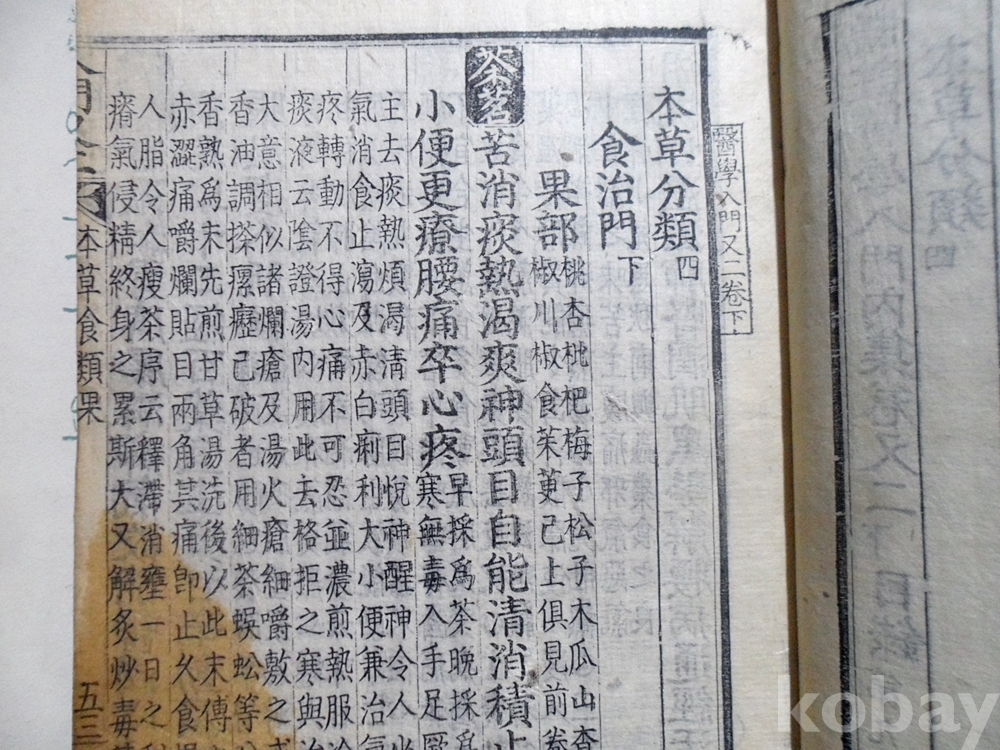 醫學入門又二卷下
本草分類 四
食治門 下
果部 桃杏枇杷梅子松子木瓜山査
椒川椒食茱萸已上俱見前卷
茶茗 苦消痰熱渴爽神頭目自能清消積止
小便更療腰痛卒心疼 早採爲茶晚採
寒無毒入手足厥
主去痰熱煩渴淸頭目悅神醒神令人少
氣消食止瀉及赤白痢利大小便兼治氣
疼轉動不得心痛不可忍並濃煎熱服
痰液云陰證湯內用此去格拒之寒與治
大意相似諸爛瘡及湯火瘡細嚼敷之或
香油調搽瘰癧已破者用細茶蜈蚣等
香熟爲末先煎甘草湯洗後以此末傅
赤澀痛嚼爛貼日兩角其痛卽止久食損
人脂令人瘦茶序云釋滯消壅一日之利
瘠氣侵精終身之累斯大又解炙炒毒
本草食類果
五三
kobay